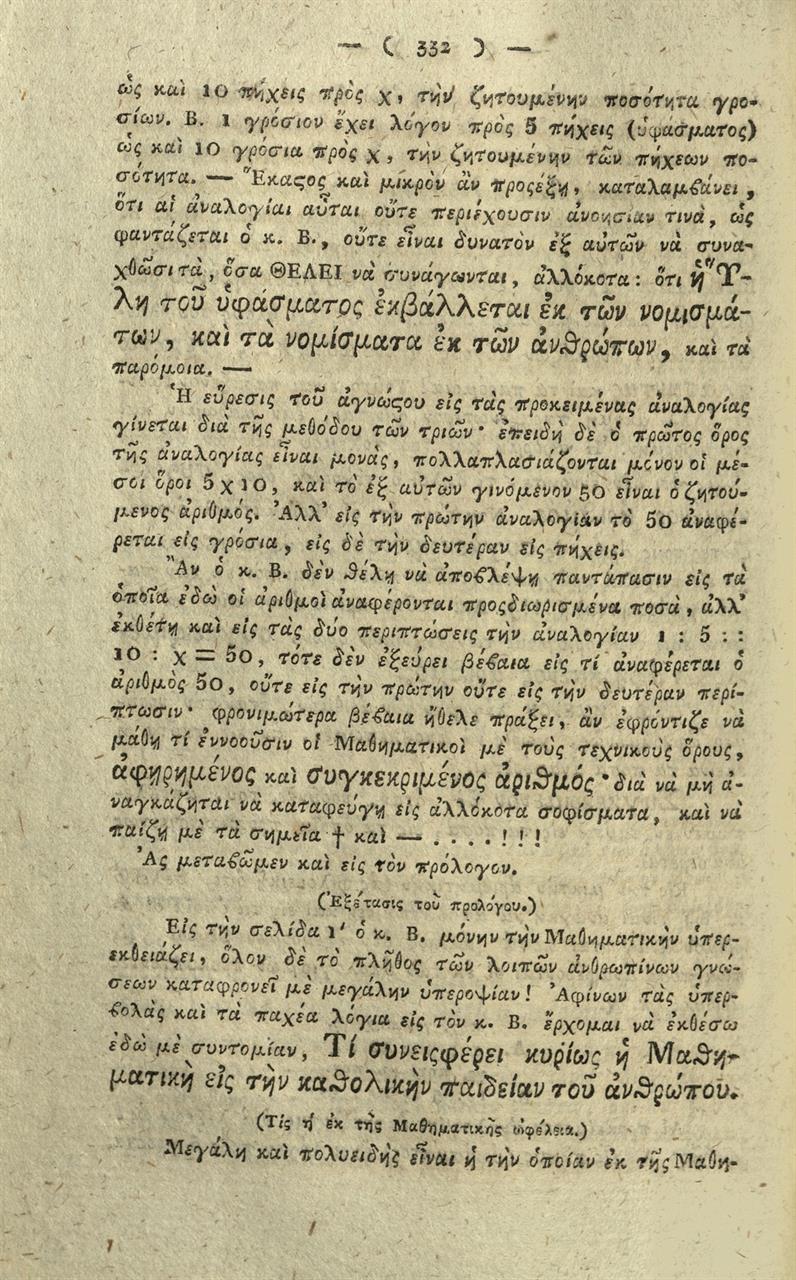 — ( 332 ) —
ὡς καὶ 10 πήχεις πρὸς χ, τὴν ζητουμένην ποσότητα γρο-
σίων. Β. 1 γρόσιον ἔχει λόγον πρὸς 5 πήχεις (ὑφάσματος)
ὡς καὶ 10 γρόσια πρὸς χ, τὴν ζητουμένην τῶν πήχεων πο-
σότητα. — Ἕκαϛος καὶ μικρὸν ἂν προςέξῃ, καταλαμβάνει,
ὅτι αἱ ἀναλογίαι αὗται οὔτε περιέχουσιν ἀνοησίαν τινὰ, ὡς
φαντάζεται ὁ κ. Β., οὔτε εἶναι δυνατὸν ἐξ αὐτῶν νὰ συνα-
χθῶσι τὰ, ὅσα ΘΕΛΕΙ νὰ συνάγωνται, ἀλλόκοτα: ὅτι ἡ Ὕ-
λη τοῦ ὑφάσματος ἐκβάλλεται ἐκ τῶν νομισμά-
των, καὶ τὰ νομίσματα ἐκ τῶν ἀνθρώπων, καὶ τὰ
παρόμοια. —
Ἡ εὕρεσις τοῦ ἀγνώϛου εἰς τὰς προκειμένας ἀναλογίας
γίνεται διὰ τῆς μεθόδου τῶν τριῶν· ἐπειδὴ δὲ ὁ πρῶτος ὅρος
τῆς ἀναλογίας εἶναι μονὰς, πολλαπλασιάζονται μόνον οἱ μέ-
σοι ὅροι 5 χ 10, καὶ τὸ ἐξ αὐτῶν γινόμενον 50 εἶναι ὁ ζητού-
μενος ἀριθμός. Ἀλλ' εἰς τὴν πρώτην ἀναλογίαν τὸ 50 ἀναφέ-
ρεται εἰς γρόσια, εἰς δὲ τὴν δευτέραν εἰς πήχεις.
Ἂν ὁ κ. Β. δὲν θέλῃ νὰ ἀποβλέψῃ παντάπασιν εἰς τὰ
ὁποῖα ἐδῶ οἱ ἀριθμοὶ ἀναφέρονται προςδιωρισμένα ποσὰ, ἀλλ'
ἐκθέτῃ καὶ εἰς τὰς δύο περιπτώσεις τὴν ἀναλογίαν 1 : 5 : :
10 : χ = 50, τότε δὲν ἐξεύρει βέβαια εἰς τί ἀναφέρεται ὁ
ἀριθμὸς 50, οὔτε εἰς τὴν πρώτην οὔτε εἰς τὴν δευτέραν περί-
πτωσιν· φρονιμώτερα βέβαια ἤθελε πράξει, ἂν ἐφρόντιζε νὰ
μάθῃ τί ἐννοοῦσιν οἱ Μαθηματικοὶ μὲ τοὺς τεχνικοὺς ὅρους,
ἀφῃρημένος καὶ συγκεκριμένος ἀριθμός· διὰ νὰ μὴ ἀ-
ναγκάζηται νὰ καταφεύγῃ εἰς ἀλλόκοτα σοφίσματα, καὶ νὰ
παίζῃ μὲ τὰ σημεῖα † καὶ — . . . . ! ! !
Ἂς μεταβῶμεν καὶ εἰς τὸν πρόλογον.
(Ἐξέτασις τοῦ προλόγου.)
Εἰς τὴν σελίδα ι' ὁ κ. Β. μόνην τὴν Μαθηματικὴν ὑπερ-
εκθειάζει, ὅλον δὲ τὸ πλῆθος τῶν λοιπῶν ἀνθρωπίνων γνώ-
σεων καταφρονεῖ μὲ μεγάλην ὑπεροψίαν! Ἀφίνων τὰς ὑπερ-
βολὰς καὶ τὰ παχέα λόγια εἰς τὸν κ. Β. ἔρχομαι νὰ ἐκθέσω
ἐδῶ μὲ συντομίαν, Τί συνειςφέρει κυρίως ἡ Μαθη-
ματικὴ εἰς τὴν καθολικὴν παιδείαν τοῦ ἀνθρώπου.
(Τίς ἡ ἐκ τῆς Μαθηματικῆς ὠφέλεια.)
Μεγάλη καὶ πολυειδὴς εἶναι ἡ τὴν ὁποίαν ἐκ τῆς Μαθη-